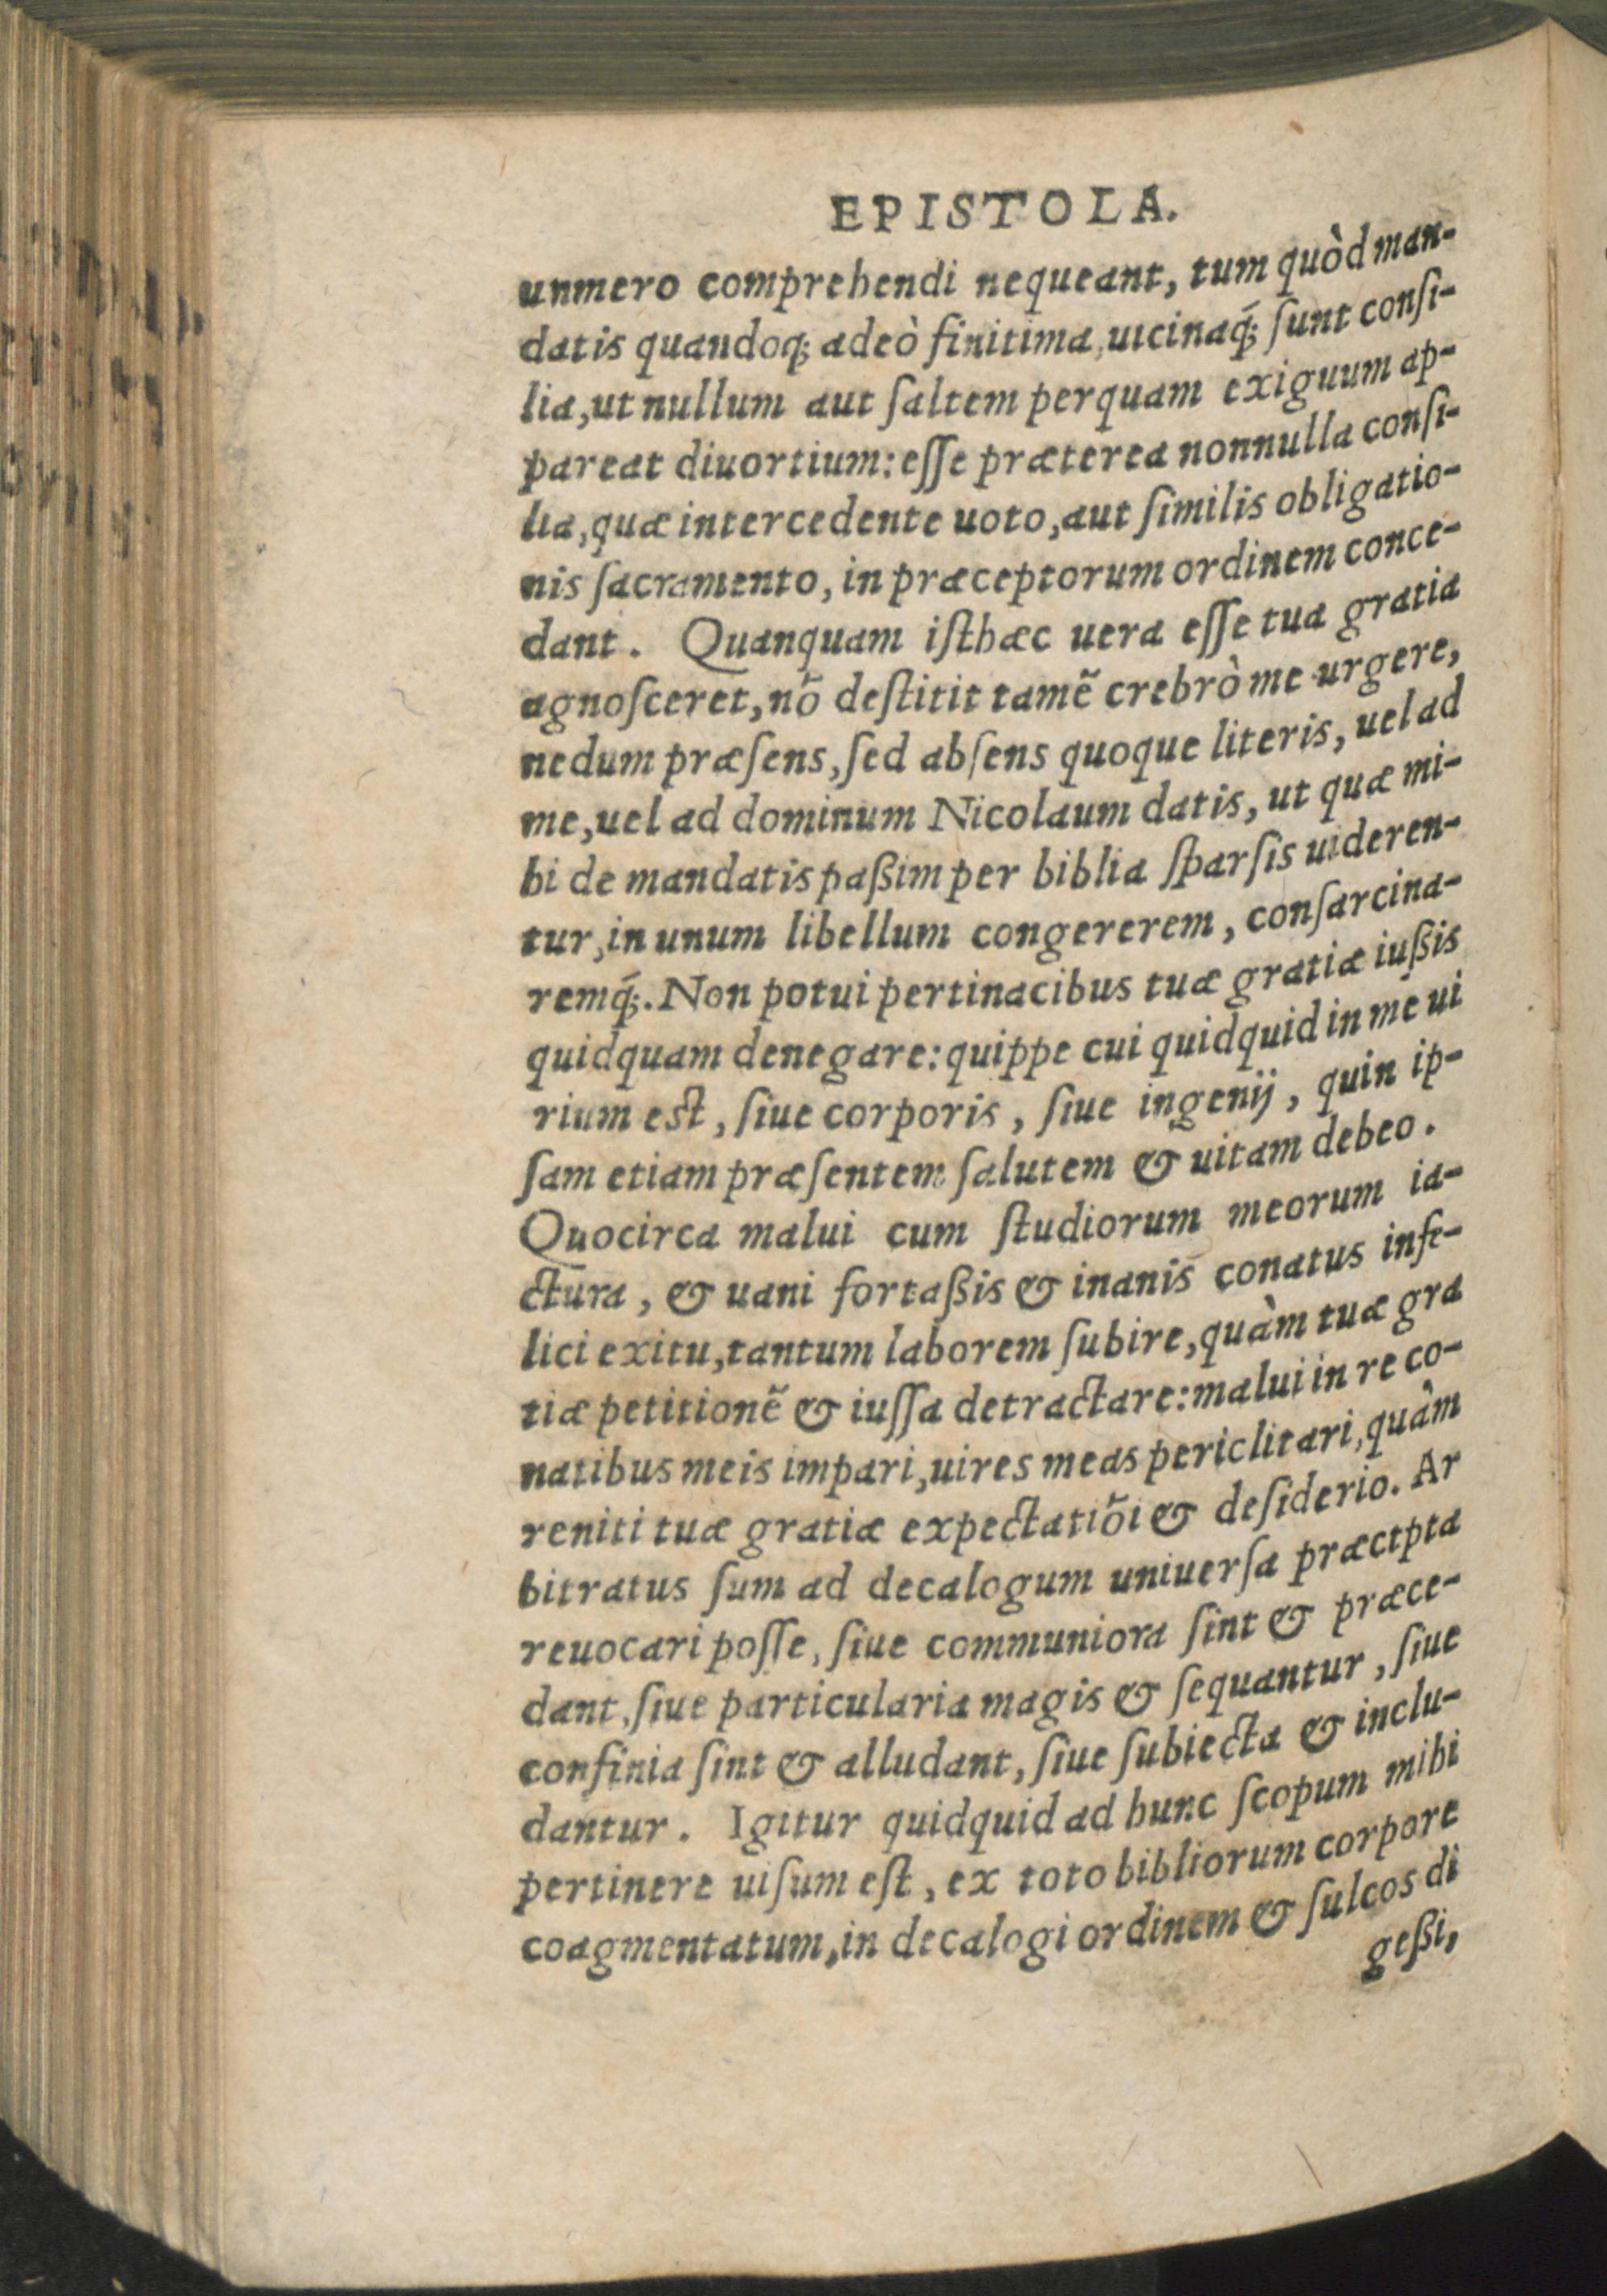 EPISTOLA.
unmero comprehendi nequeant, tum quòd man-
datis quandoq́; adeò finitima, uicinaq́; ſunt conſi-
lia, ut nullum aut ſaltem perquam exiguum ap-
pareat diuortium: eſſe præterea nonnulla conſi-
lia, quæ intercedente uoto, aut ſimilis obligatio-
nis ſacramento, in præceptorum ordinem conce-
dant. Quanquam iſthæc uera eſſe tua gratia
agnoſceret, nõ deſtitit tamẽ crebrò me urgere,
nedum præſens, ſed abſens quoque literis, uel ad
me, uel ad dominum Nicolaum datis, ut quæ mi-
bi de mandatis paßim per biblia ſparſis uideren-
tur, in unum libellum congererem, conſarcina-
remq́;. Non potui pertinacibus tuæ gratiæ iußis
quidquam denegare: quippe cui quidquid in me ui
rium est, ſiue corporis, ſiue ingenij, quin ip-
ſam etiam præſentem ſalutem & uitam debeo.
Quocirca malui cum ſtudiorum meorum ia-
ctura, & uani fortaßis & inanis conatus infe-
lici exitu, tantum laborem ſubire, quàm tuæ gra
tiæ petitionẽ & iuſſa detractare: malui in re co-
natibus meis impari, uires meas periclitari, quàm
reniti tuæ gratiæ expectatiõi & deſiderio. Ar
bitratus ſum ad decalogum uniuerſa præctpta
reuocari poſſe, ſiue communiora ſint & præce-
dant, ſiue particularia magis & ſequantur, ſiue
confinia ſint & alludant, ſiue ſubiecta & inclu-
dantur. Igitur quidquid ad hunc ſcopum mihi
pertinere uiſum eſt, ex toto bibliorum corpore
coagmentatum, in decalogi ordinem & ſulcos di
geßi,